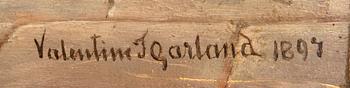 Valentine T Garland 1897